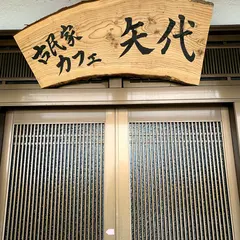 古民家
カフェ
矢代